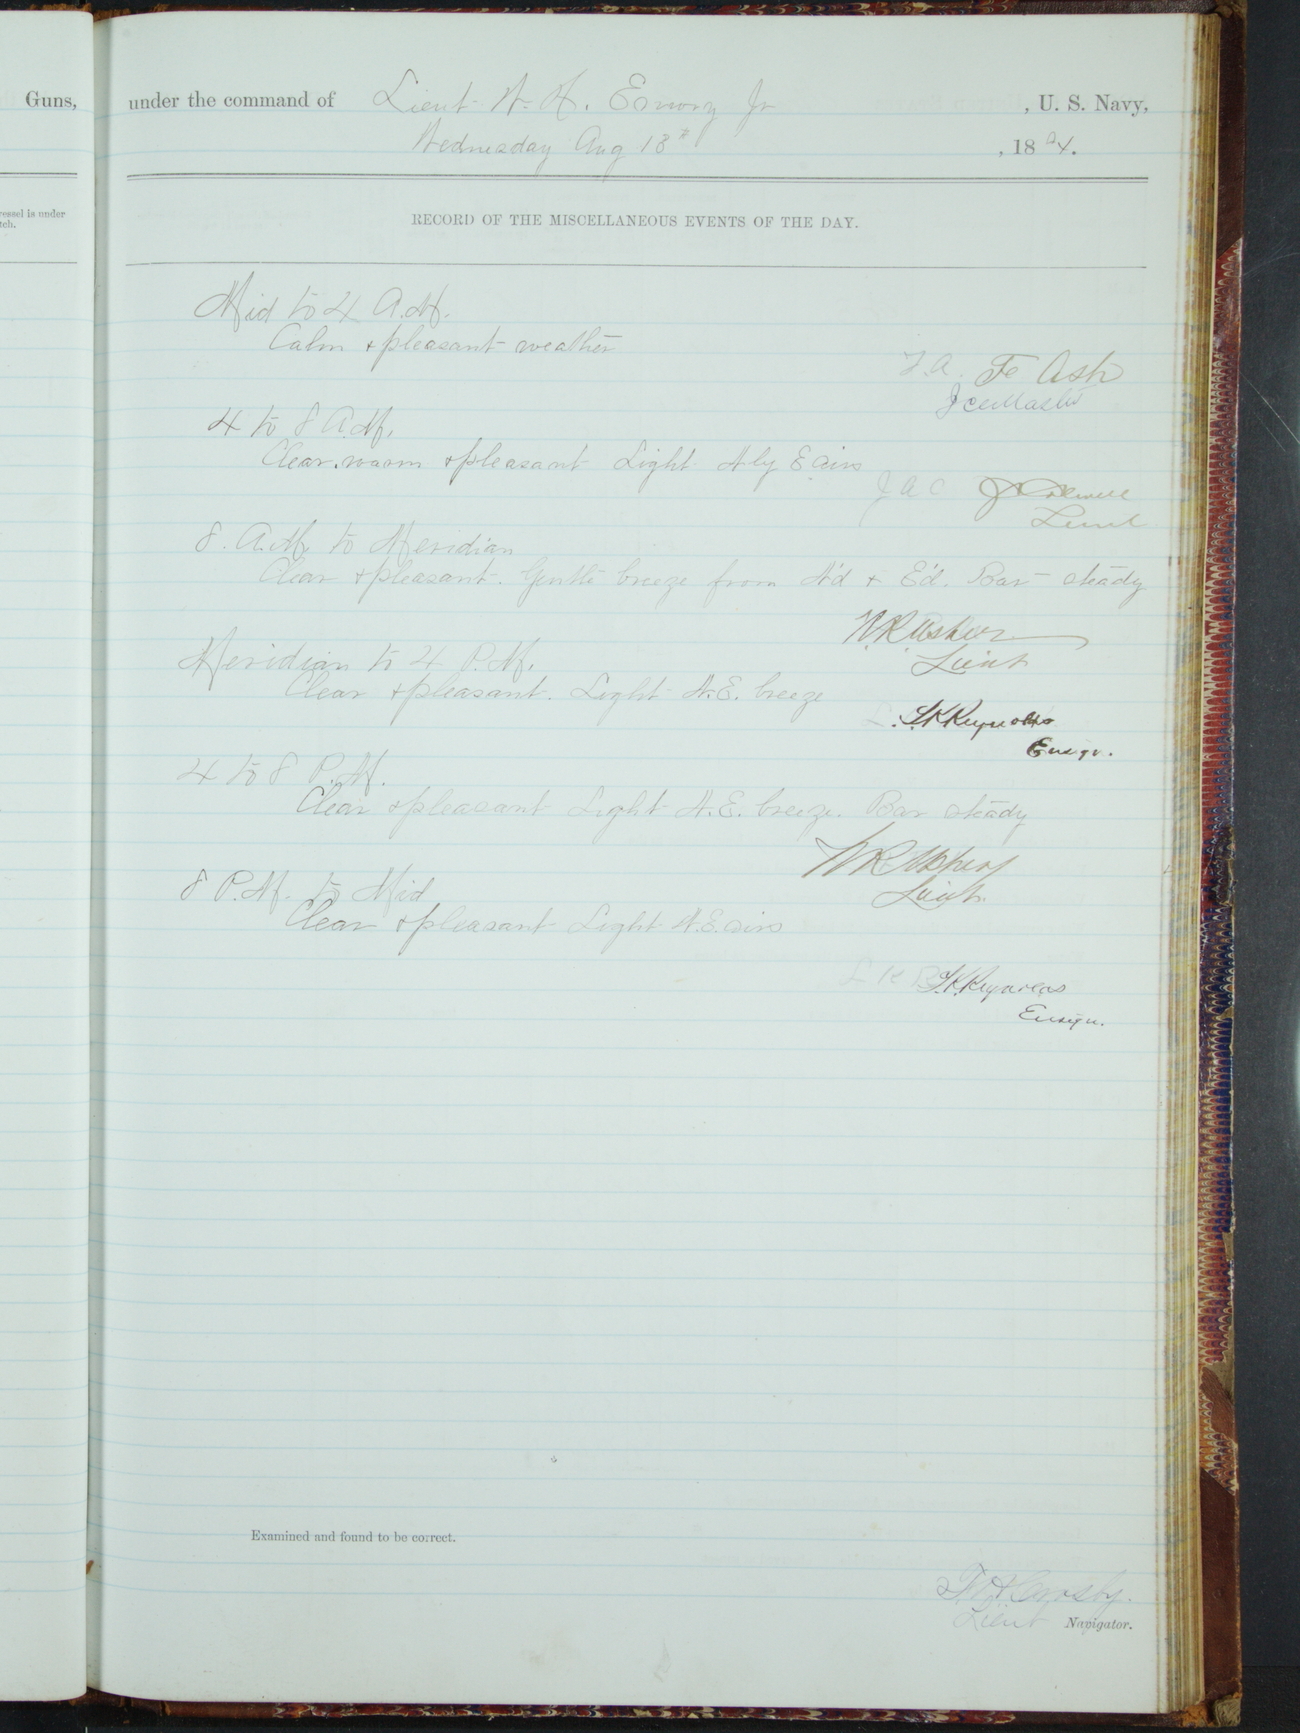 Guns,
under the command of Lieut W. H. Emory Jr , U. S. Navy,
Wednesday Aug 13th , 1884.
ressel is under
tch.
RECORD OF THE MISCELLANEOUS EVENTS OF THE DAY.
Mid to 4 A.M.
Calm & pleasant weather
4 to 8 A.M.
Clear, warm & pleasant Light N'ly & E airs
J A C
Lieut
8. A.M. to Meridian
Clear & pleasant. Gentle breeze from N'd & E'd. Bar steady
N.R. Usher
Lieut
Meridian to 4 P.M.
Clear & pleasant. Light N.E. breeze
L. K. Reynolds
Ensign.
4 to 8 P.M.
Clear & pleasant Light N.E. breeze. Bar steady
N R Usher
Lieut.
8 P.M. to Mid
Clear & pleasant Light N.E. airs
L K R L.K. Reynolds
Ensign.
Examined and found to be correct.
Lieut Navigator.